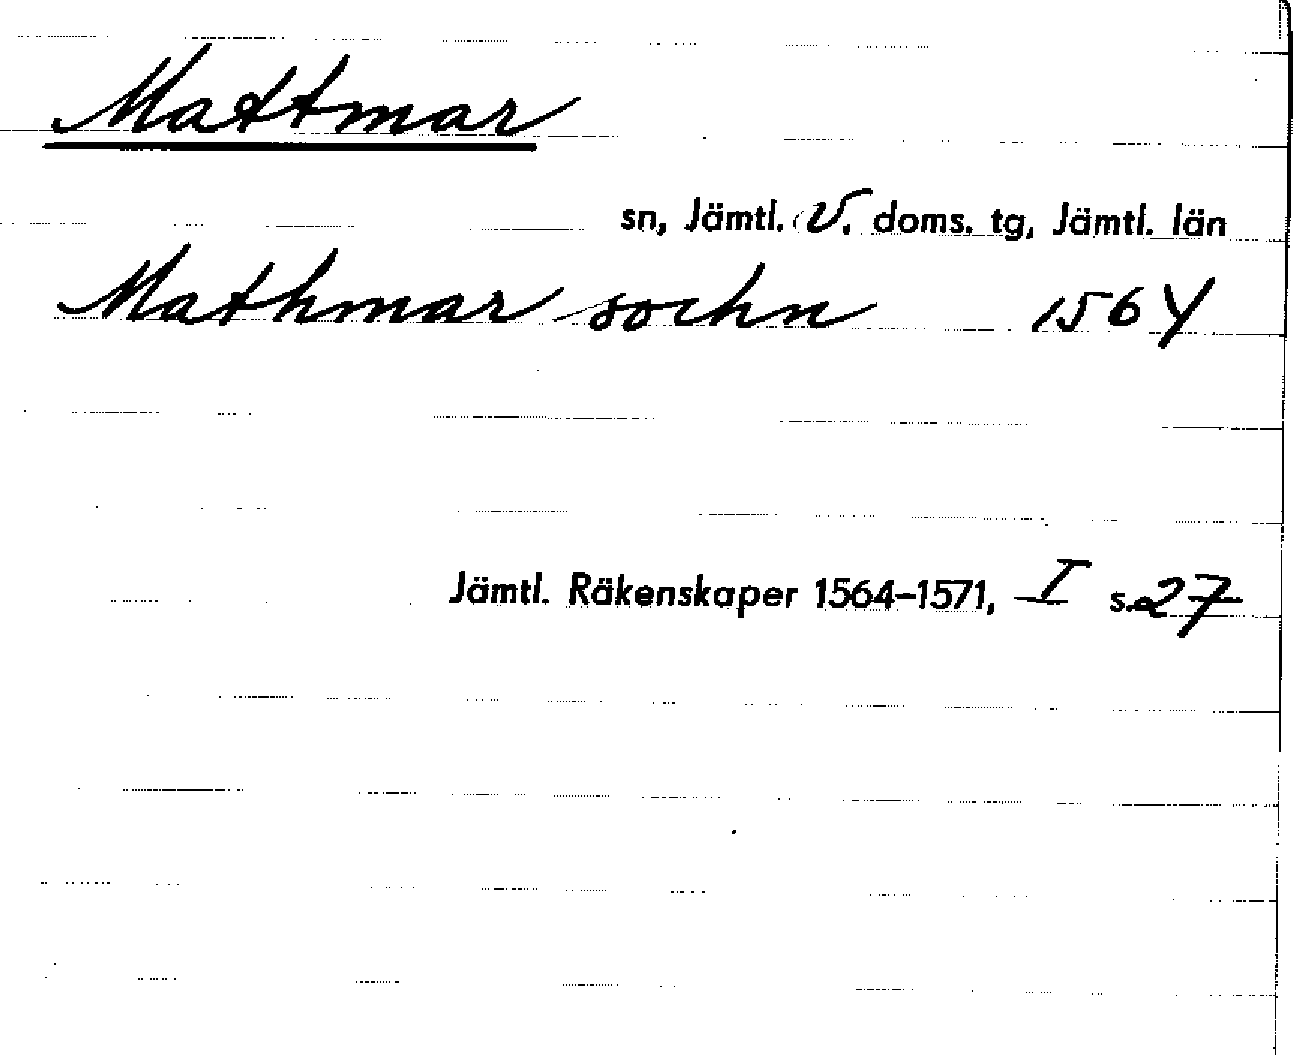 Mattmar
sn, Jämtl. V. doms. tg, Jämtl. län
Mathmar sochn 1564
Jämtl. Räkenskaper 1564–1571, I s. 27